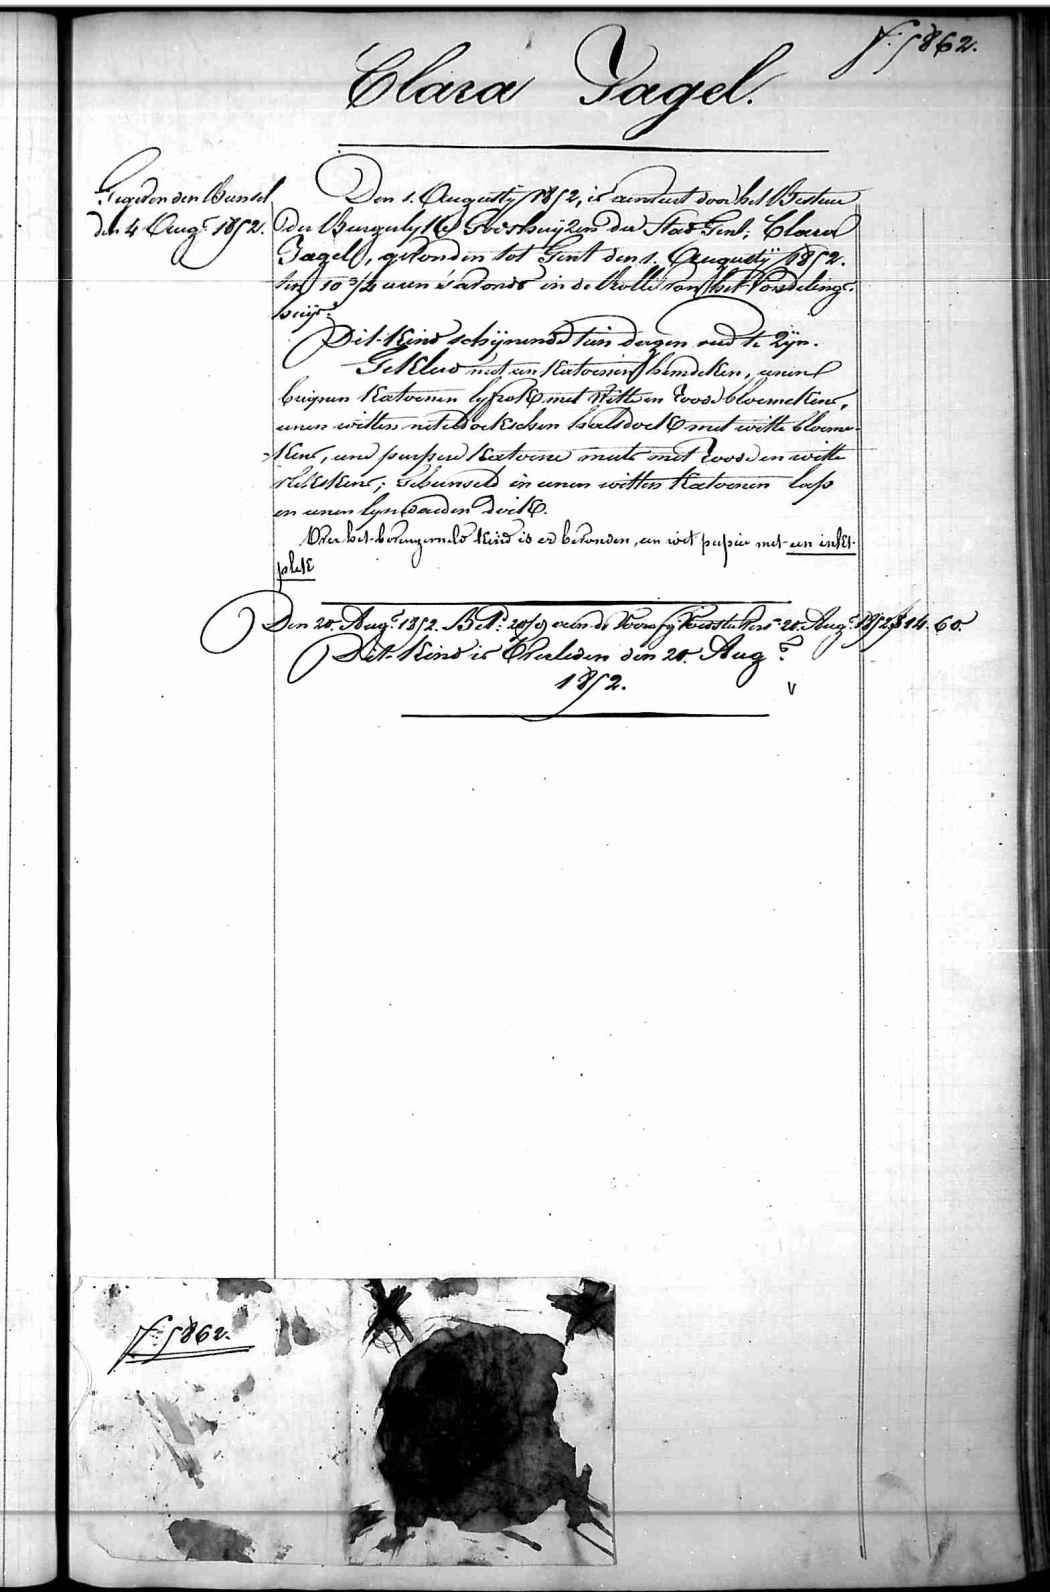 5862.
Clara Jagel.
Gegeven den Bunsel
den 4 Augt 1852.
Den 1. Augusty 1852, is aenveert door het Bestuur
der Burgerlyke Godshuyzen der Stad Gent; Clara
Jagel, gevonden tot Gent den 1. Augusty 1852.
ten 10 3/4 uren 's avonds in de Rolle van het Vondeling-
huys.
Dit Kind schynende tien dagen oud te zyn.
Gekleed met een Katoenen hemdeken, eenen
bruynen Katoenen lyfrok met witte en roode bloemekens,
eenen witten neteldoekschen halsdoek met witte bloeme-
kens, eene purpere Katoene muts met roode en witte
plekskens; Gebunseld in eenen witten Katoenen laps
en eenen lynwaeden doek.
Over het bovengemeld Kind is er bevonden, een wit papier met een inkt-
plek
Den 20. Augt 1852. B. No: 20/9 aen de 20. Augt 1852, 14. 60.
Dit Kind is Overleden den 20. Augt
1852.
5862.